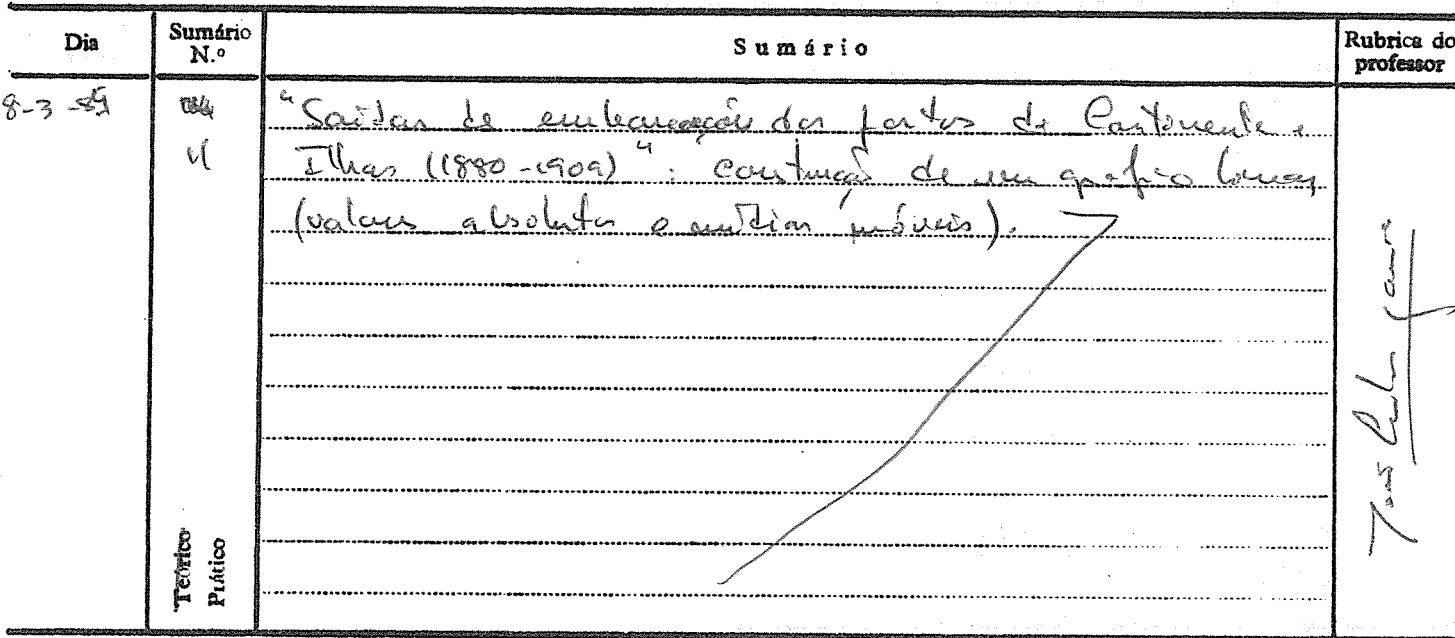 Dia
Sumário N.º
Sumário
Rubrica do professor
8-3-
"Saídas de embarcações dos portos do Continente e
Ilhas (1880-1909)": construção de um gráfico linear
(valores absolutos e médias móveis).
Teórico
Prático